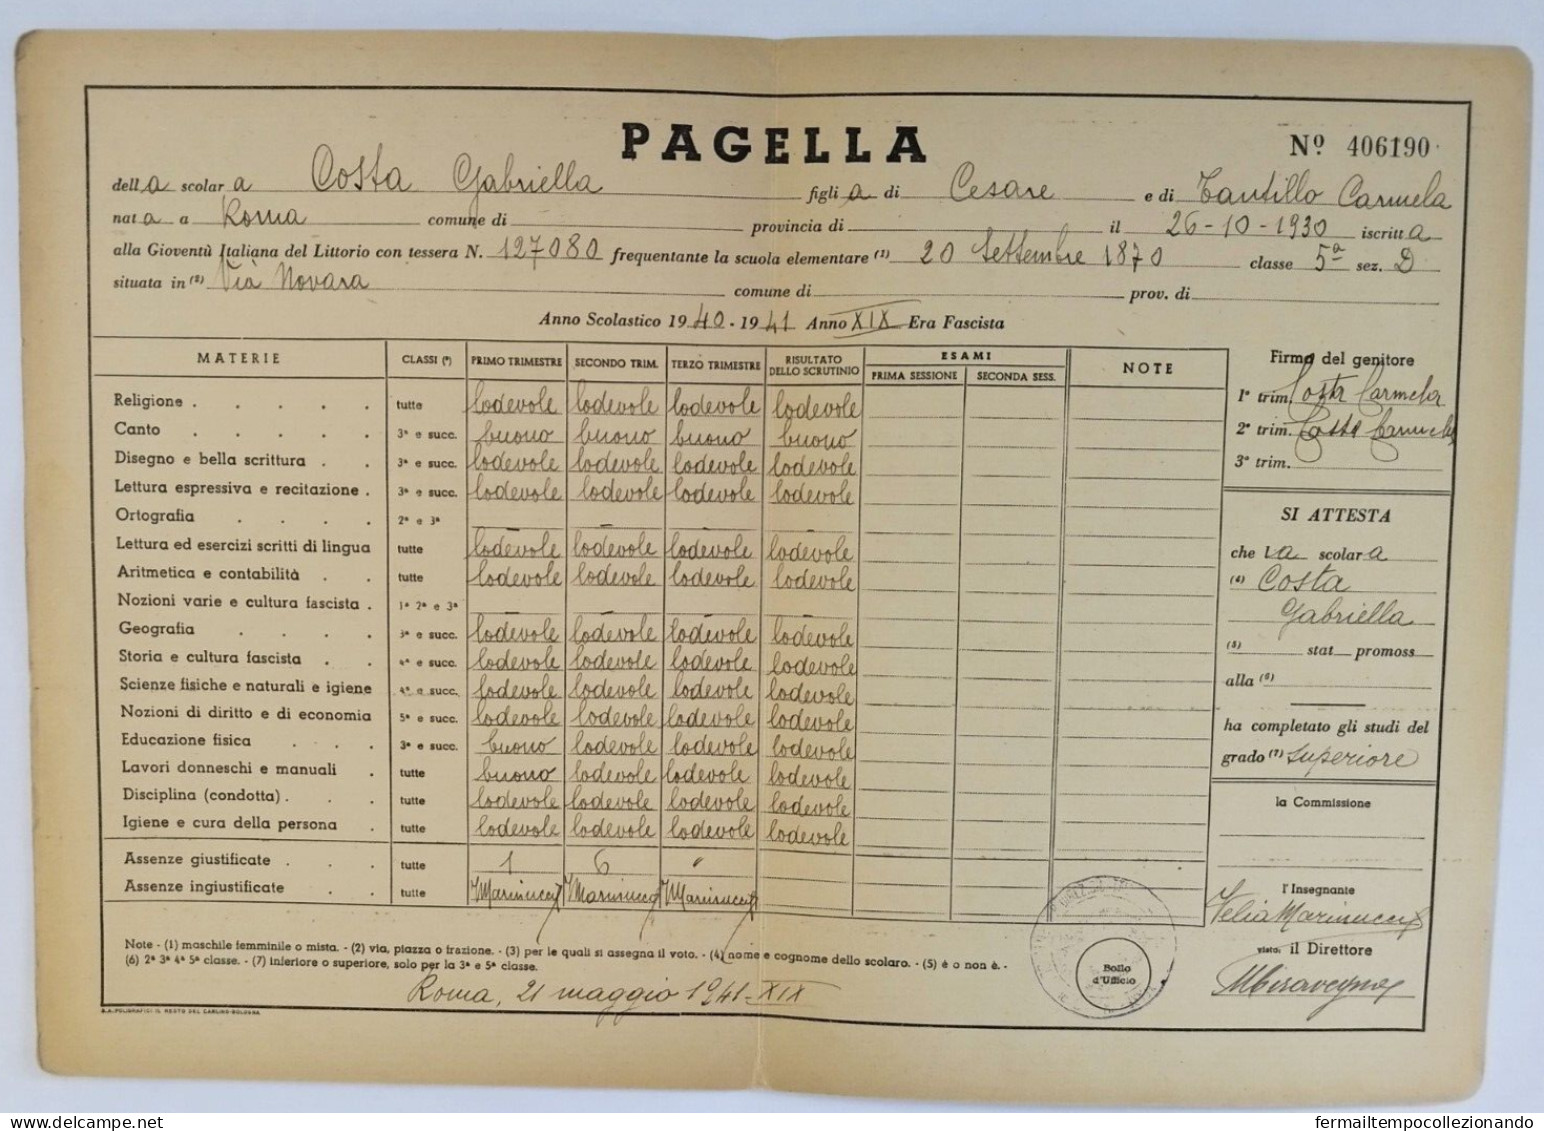 PAGELLA
Nº 406190
della scolara Costa Gabriella figlia di Cesare e di Tantillo Carmela
nata a Roma comune di provincia di il 26-10-1930 iscritta
alla Gioventù Italiana del Littorio con tessera N. 127080 frequentante la scuola elementare (1) 20 Settembre 1870 classe 5ª sez. D
situata in (2) Via Novara comune di prov. di
Anno Scolastico 1940-1941 Anno XIX Era Fascista
MATERIE CLASSI (3) PRIMO TRIMESTRE SECONDO TRIM. TERZO TRIMESTRE RISULTATO DELLO SCRUTINIO ESAMI PRIMA SESSIONE SECONDA SESS. NOTE
Religione . . . . . tutte lodevole lodevole lodevole lodevole
Canto . . . . . 3ª e succ. buono buono buono buono
Disegno e bella scrittura . . 3ª e succ. lodevole lodevole lodevole lodevole
Lettura espressiva e recitazione . 3ª e succ. lodevole lodevole lodevole lodevole
Ortografia . . . . 2ª e 3ª — — — —
Lettura ed esercizi scritti di lingua tutte lodevole lodevole lodevole lodevole
Aritmetica e contabilità . . tutte lodevole lodevole lodevole lodevole
Nozioni varie e cultura fascista . 1ª 2ª e 3ª — — — —
Geografia . . . . 3ª e succ. lodevole lodevole lodevole lodevole
Storia e cultura fascista . . 4ª e succ. lodevole lodevole lodevole lodevole
Scienze fisiche e naturali e igiene 4ª e succ. lodevole lodevole lodevole lodevole
Nozioni di diritto e di economia 5ª e succ. lodevole lodevole lodevole lodevole
Educazione fisica . . . 3ª e succ. buono lodevole lodevole lodevole
Lavori donneschi e manuali . tutte buono lodevole lodevole lodevole
Disciplina (condotta) . . . tutte lodevole lodevole lodevole lodevole
Igiene e cura della persona . tutte lodevole lodevole lodevole lodevole
Assenze giustificate . . . tutte 1 6 "
Assenze ingiustificate . . tutte Marinucci Marinucci Marinucci
Firma del genitore
1º trim. Costa Carmela
2º trim. Costa Carmela
3º trim.
SI ATTESTA
che la scolara
(4) Costa
Gabriella
(5) stat promoss
alla (6)
ha completato gli studi del
grado (7) superiore
la Commissione
l'Insegnante
Velia Marinucci
visto: il Direttore
Bollo
d'Ufficio
Note - (1) maschile femminile o mista. - (2) via, piazza o frazione. - (3) per le quali si assegna il voto. - (4) nome e cognome dello scolaro. - (5) è o non è. -
(6) 2ª 3ª 4ª 5ª classe. - (7) inferiore o superiore, solo per la 3ª e 5ª classe.
Roma, 21 maggio 1941-XIX
S.A. POLIGRAFICI IL RESTO DEL CARLINO-BOLOGNA
delcampe.net
fermailtempocollezionando